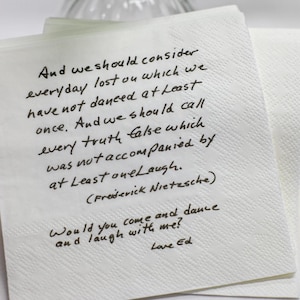 And we should consider
everyday lost on which we
have not danced at Least
once. And we should call
every truth false which
was not accompanied by
at Least one Laugh.
(Frederick Nietzsche)
Would you come and dance
and laugh with me?
Love Ed